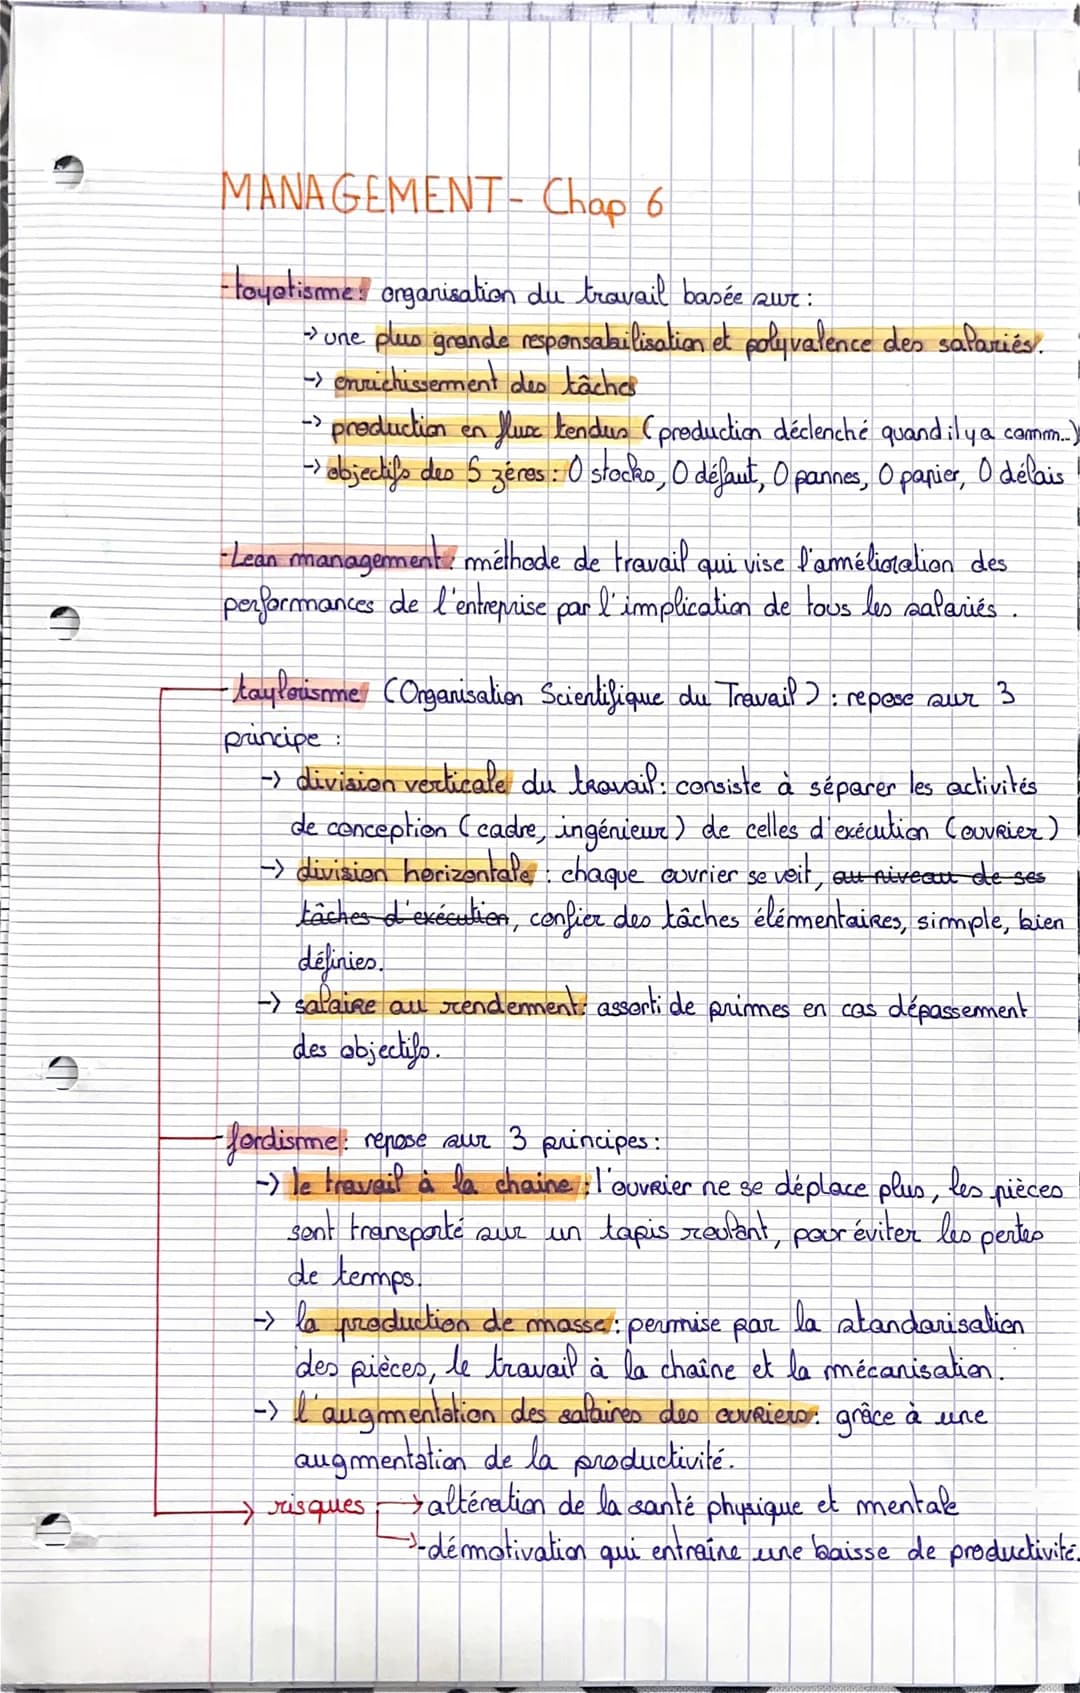 MANAGEMENT - Chap 6
- toyotisme : organisation du travail basée sur :
-> une plus grande responsabilisation et polyvalence des salariés.
-> enrichissement des tâches
-> production en flux tendus (production déclenché quand il y a comm...)
-> objectifs des 5 zéros : 0 stocks, 0 défaut, 0 pannes, 0 papier, 0 délais
- Lean management : méthode de travail qui vise l'ammélioration des
performances de l'entreprise par l'implication de tous les salariés .
- taylorisme (Organisation Scientifique du Travail) : repose sur 3
principe :
-> division verticale du travail : consiste à séparer les activités
de conception (cadre, ingénieur) de celles d'exécution (ouvrier)
-> division horizontale : chaque ouvrier se voit, au niveau de ses
tâches d'exécution, confier des tâches élémentaires, simple, bien
définies.
-> salaire au rendement : assorti de primes en cas dépassement
des objectifs.
- fordisme : repose sur 3 principes :
-> le travail à la chaine : l'ouvrier ne se déplace plus, les pièces
sont transporté sur un tapis roulant, pour éviter les pertes
de temps.
-> la production de masse : permise par la standarisation
des pièces, le travail à la chaîne et la mécanisation.
-> l'augmentation des salaires des ouvriers : grâce à une
augmentation de la productivité.
-> risques -> altération de la santé physique et mentale
-> -démotivation qui entraîne une baisse de productivité.